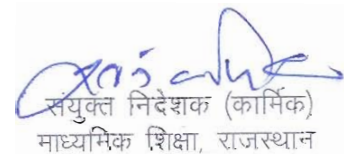 संयुक्त निदेशक (कार्मिक)
माध्यमिक शिक्षा, राजस्थान